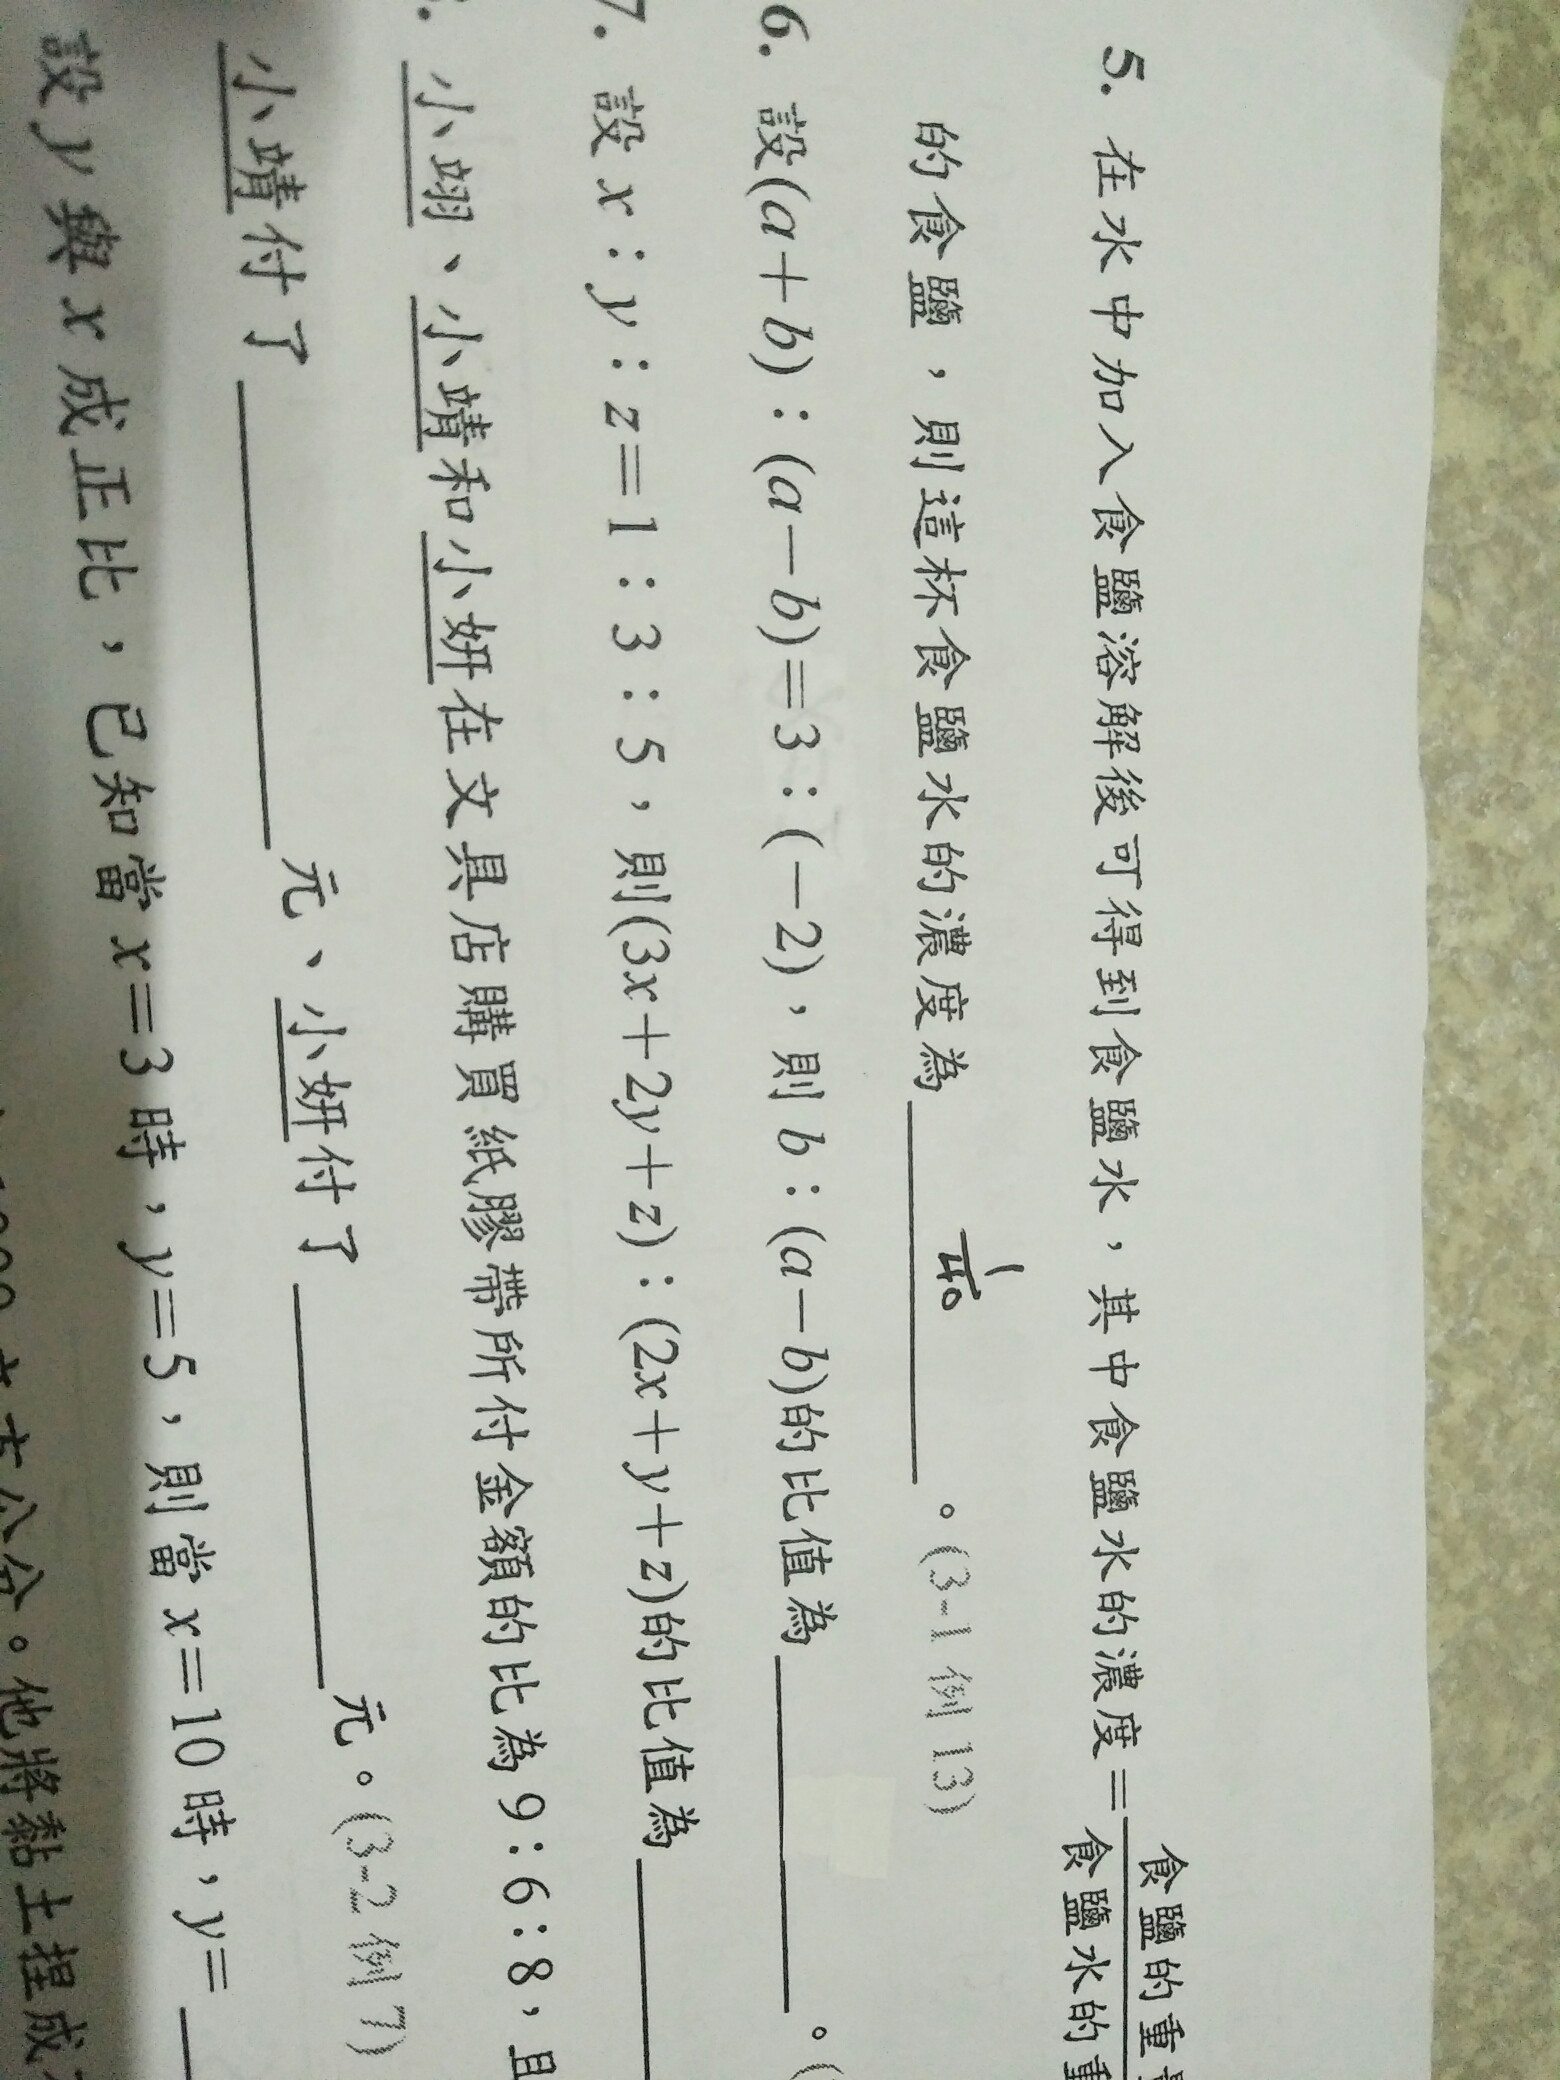 5. 在水中加入食鹽溶解後可得到食鹽水，其中食鹽水的濃度=食鹽的重
食鹽水的重
的食鹽，則這杯食鹽水的濃度為 1/40 。(3-1 例 13)
6. 設(a+b)：(a-b)=3：(-2)，則 b：(a-b)的比值為______。(
7. 設 x：y：z=1：3：5，則(3x+2y+z)：(2x+y+z)的比值為______
小翊、小靖和小妍在文具店購買紙膠帶所付金額的比為 9：6：8，且
小靖付了______元、小妍付了______元。(3-2 例 7)
設 y 與 x 成正比，已知當 x=3 時，y=5，則當 x=10 時，y=______
立方公分。他將黏土捏成